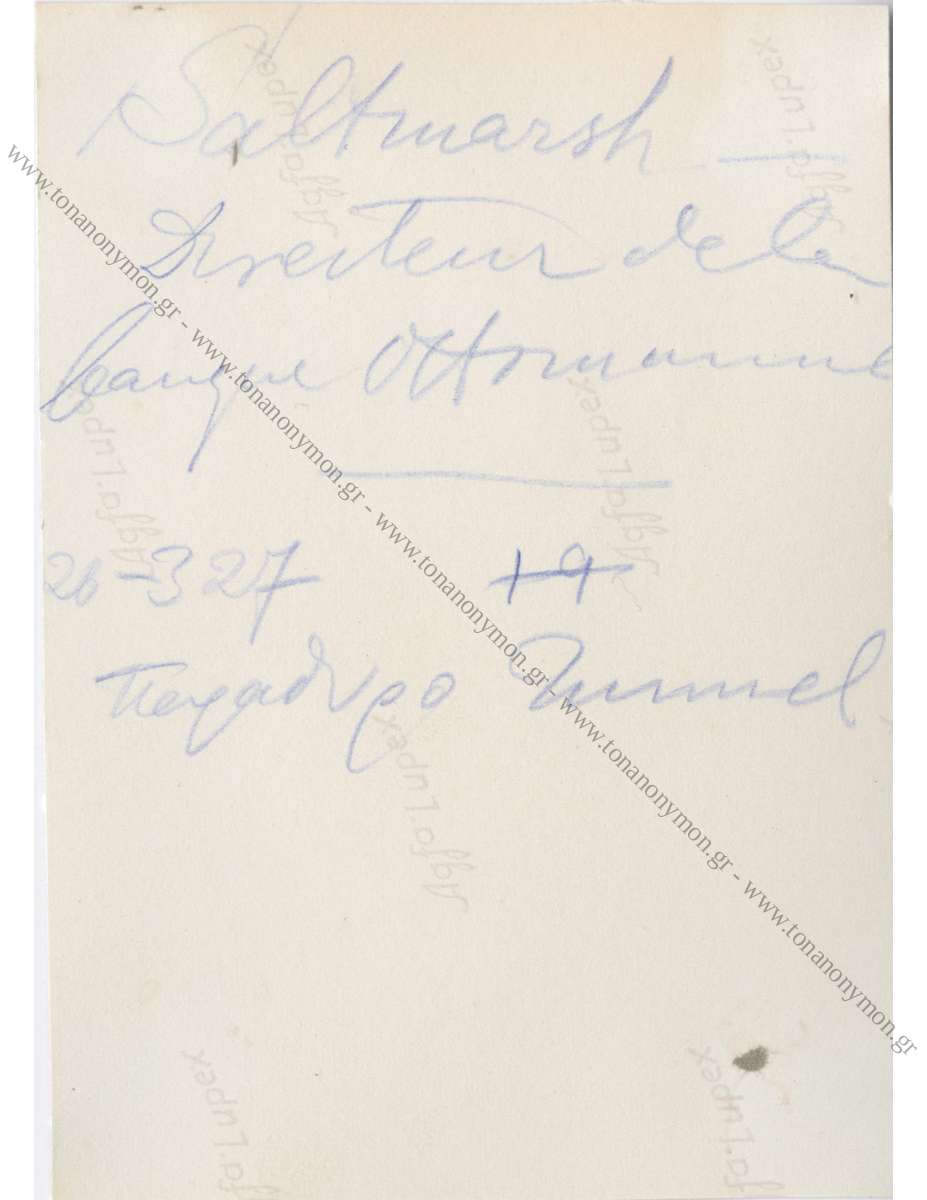 Saltmarsh —
Directeur de la
banque Ottomanne
26-3 27 +9
Πεχαδυρο Tunnel
Agfa-Lupex
Agfa-Lupex
Agfa-Lupex
Agfa-Lupex
Agfa-Lupex
fa-Lupex
fa-Lupex
www.tonanonymon.gr - www.tonanonymon.gr - www.tonanonymon.gr - www.tonanonymon.gr - www.tonanonymon.gr